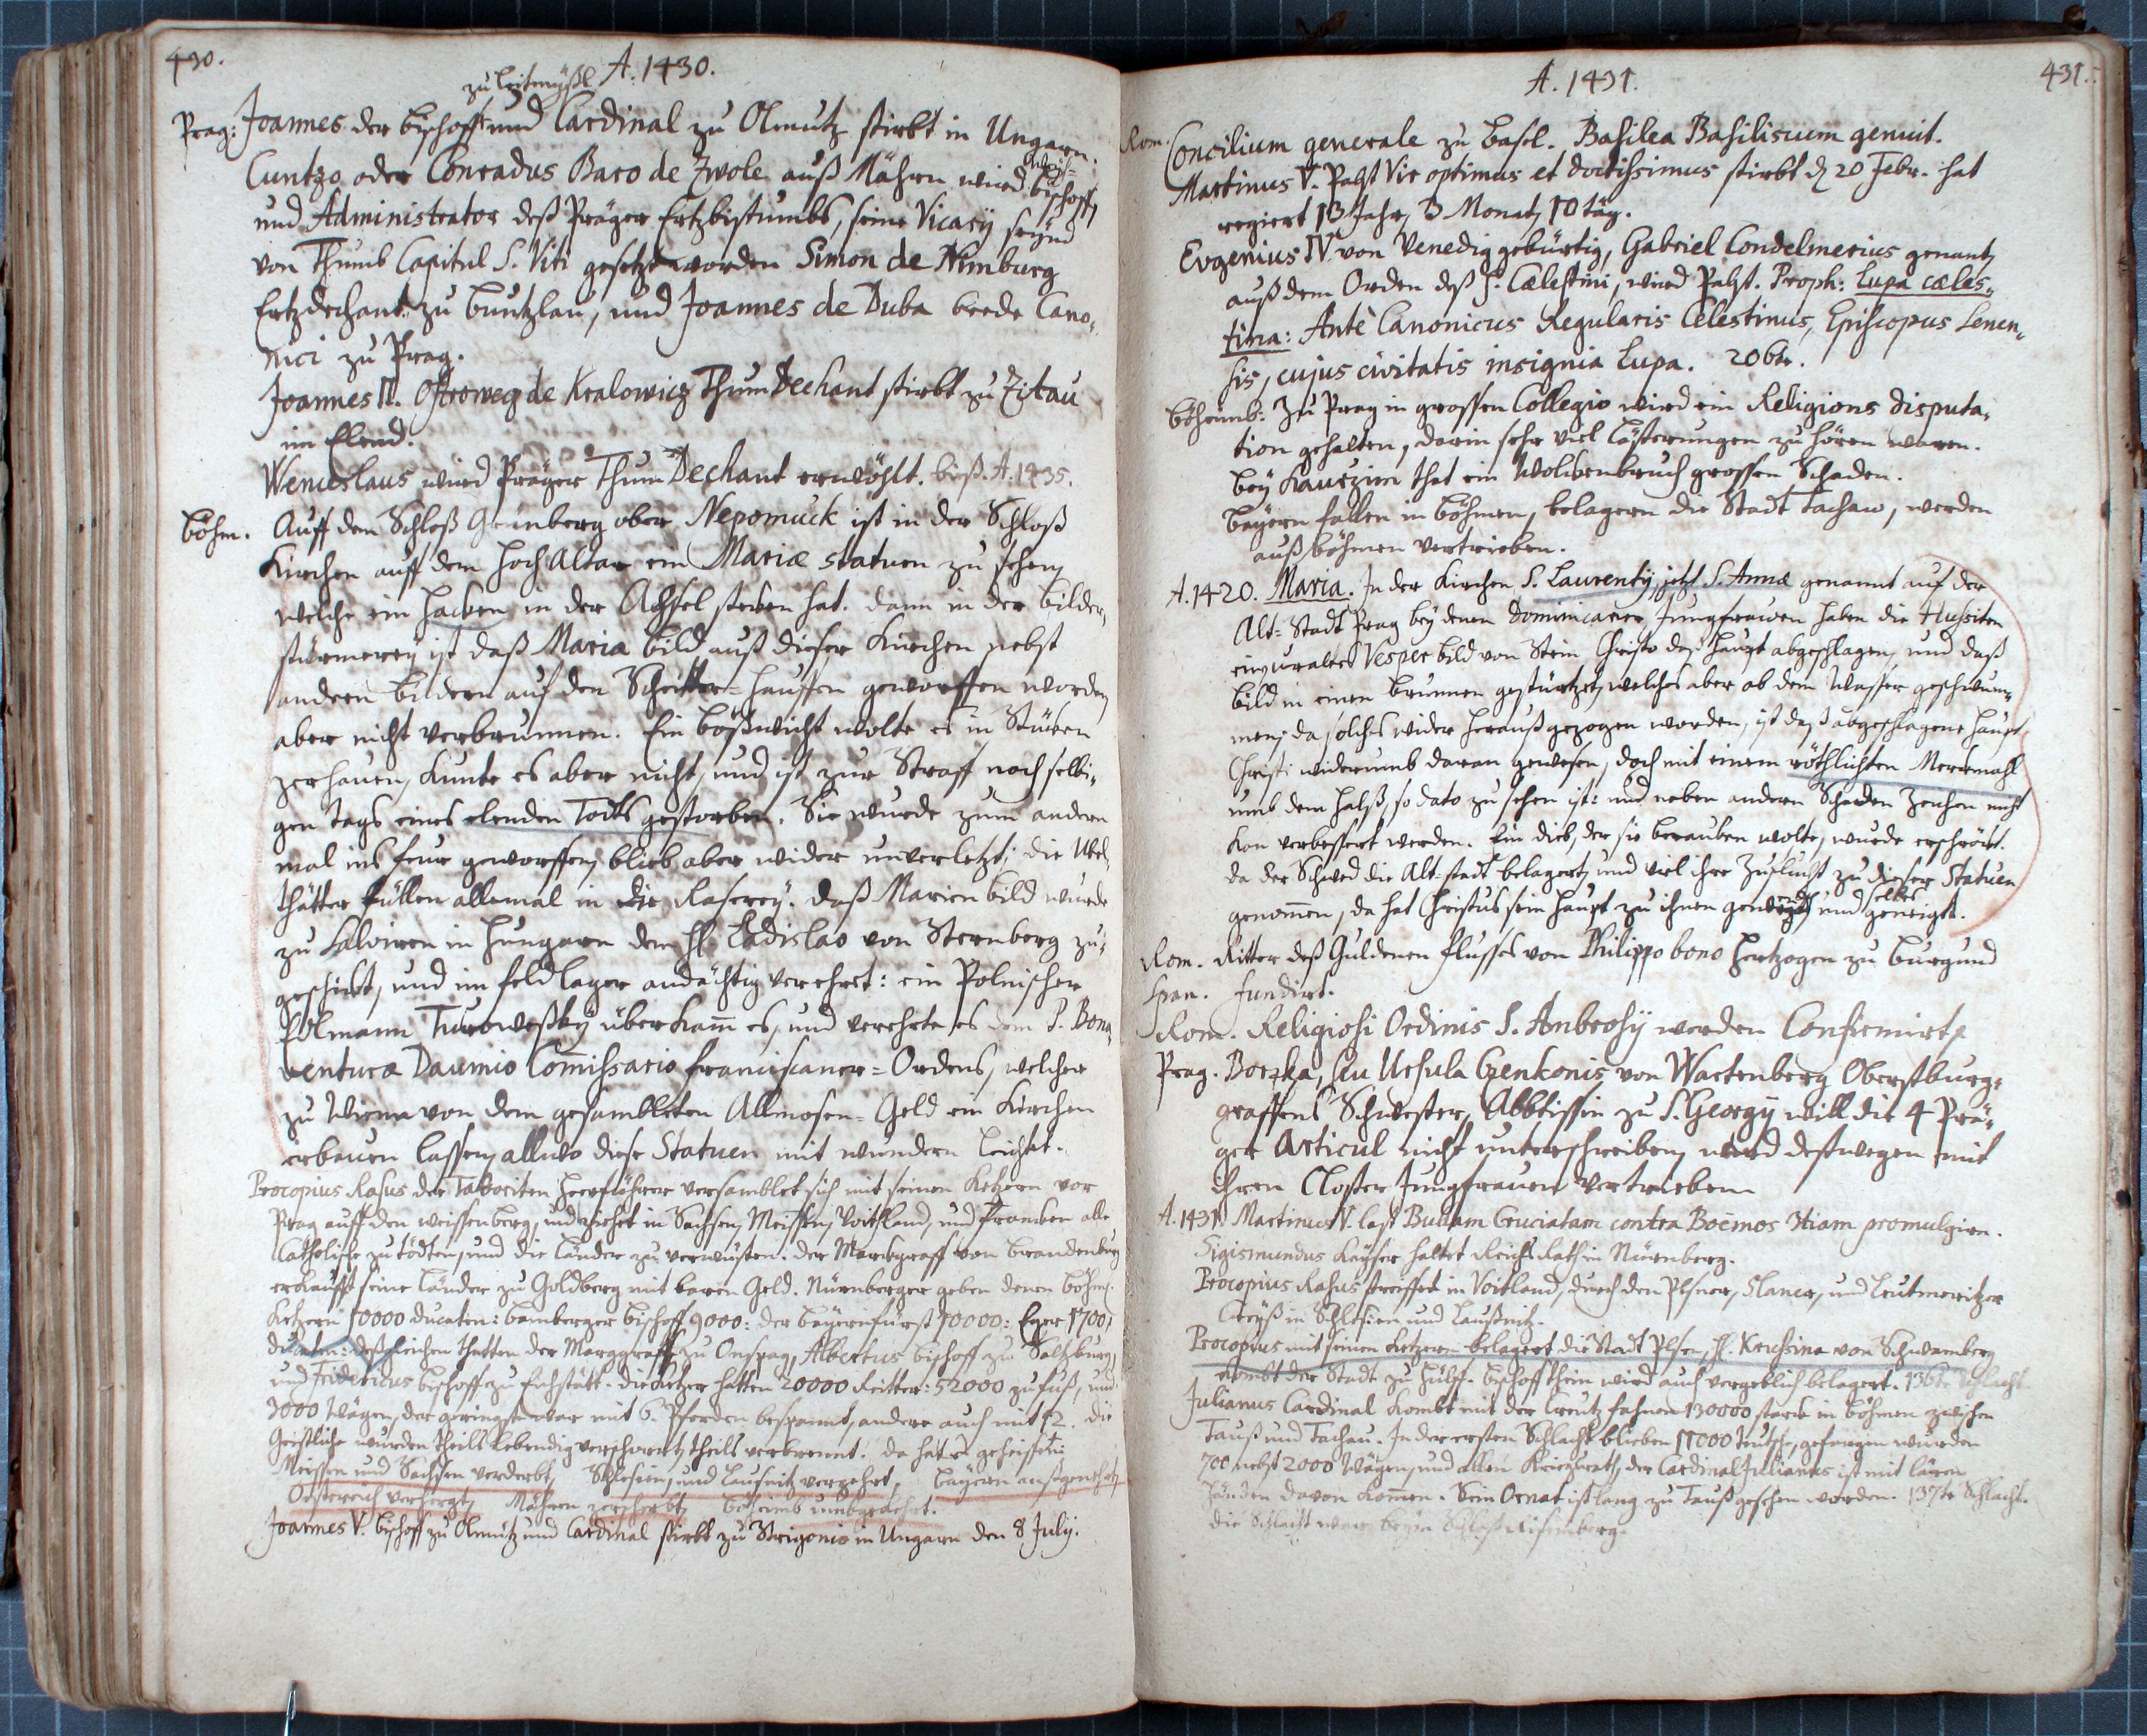 430.
A. 1430.
zu Leitomyßl
Prag: Joannes der bischoff und Cardinal zu Olmutz stirbt in Ungarn.
Cuntzo oder Conradus Baro de Zwole auß Mähren wird bischoff,
und Administrator deß Prager Ertzbistumbs, seine Vicarij seynd
von Thumb Capitul S. Viti gesetzt worden Simon de Nimburg
Ertzdechant zu buntzlau, und Joannes de Duba beede Cano-
nici zu Prag.
Joannes II. de Kralowicz Thum Dechant stirbt zu Zittau
im Elend.
Wenceslaus wird Präger Thum Dechant erwöhlt. biß. A. 1435.
böhm. Auff dem Schloß Grünberg ober Nepomuck ist in der Schloß
Kirchen auff dem hoch Altar ein Mariæ statuen zu sehen,
welche ein hacken in der Achsel stecken hat. dann in der bilder-
stürmerey ist daß Maria bild auß dieser Kirchen nebst
andern bildern auf den Scheitter-hauffen geworffen worden,
aber nicht verbrunnen. Ein bößwicht wolte es in Stücken
zerhauen, kunte es aber nicht, und ist zur Straff noch selbi-
gen tags eines elenden Todts gestorben. Sie wurde zum andern
mal ins feur geworffen, blieb aber wider unverletzt; die Übel-
thätter füllen allemal in die Raserey. daß Marien bild wurde
zu in Hungarn dem H. Ladislao von Sternberg zu-
geschickt, und im feldlager andächtig verehret: ein Polnischer
Edlmann Turoweßky überkam es, und verehrte es dem P. Bona-
venturæ Daumio Comissario franciscaner-Ordens, welcher
zu Wienn von dem gesambleten Allmosen-Geld ein Kirchen
erbauen lassen, allwo diese Statuen mit wundern leichtet.
Procopius Rasus der Taboriten heerführer versamblet sich mit seinen Ketzern vor
Prag auff den weissenberg, und ziehet in Sachsen, Meissen, Voitland, und Francken alle
Catholische zu tödten, und die Länder zu verwüsten. der Marckgraff von brandenburg
erkaufft seine Länder zu Goldberg mit baren Geld. Nürnberger geben denen böhm.
Ketzern 10000 ducaten: bamberger bischoff 9000: der bayernfürst 10000: Eger 1700
ducaten: desgleichen thetten der Marggraff zu Onspag, Albertus bischoff zu Saltzburg,
und Fridericus bischoff zu Eichstätt. die Ketzer hatten 20000 Reitter: 52000 zu fuß, und
3000 Wägen, der geringste war mit 6. Pferden bespannt, andere auch mit 12. die
Geistliche wurden theils lebendig verscharrt, theils verbrennt. da hat es geheissen:
Meissen und Sachsen verderbt, Schlesien, und Lausnitz verzehrt, bayern
Oesterreich verhergt, Mähren böheimb umbgekehrt.
Joannes V. bischoff zu Olmutz und Cardinal stirbt zu Strigonio in Ungarn den 8 July.
431.
A. 1431.
Rom. Concilium generale zu basel. Basilea Basiliscum genuit.
Martinus V. Pabst Vir optimus et doctissimus stirbt d. 20 Febr. hat
regiert 13 Jahr, 3 Monat, 10 täg.
Eugenius IV von Venedig gebürtig, Gabriel Condelmerius genant,
auß dem Orden deß S. Cælestini, wird Pabst. Proph: Lupa cæles-
tina: Antè Canonicus Regularis Celestinus, Episcopus Senen-
sis, cujus civitatis insignia Lupa.
böheimb: Zu Prag in grossen Collegio wird ein Religions disputa-
tion gehalten, darin sehr viel Lästerungen zu hören waren.
bey Kaurzim that ein Wolckenbruch grossen Schaden.
bayern fallen in böhmen, belagern die Stadt Tachaw, werden
auß böhmen vertrieben.
A. 1420. Maria. In der Kirchen S. Laurentij, jetzt S. Annæ genannt auf der
Alt-Stadt Prag bey denen Dominicaner Jungfrauen haben die Hussiten
ein uraltes Vesper bild von Stein Christo daß haupt abgeschlagen, und daß
bild in einen brunnen gestürtzet, welches aber ob dem Wasser geschwum-
men; da solches wider heraußgezogen worden, ist daß abgeschlagene haupt
Christi widerumb daran gewesen, doch mit einem röthlichten Merckmahl
umb dem halß, so dato zu sehen ist: und neben andern Schaden Zeichen nicht
kan verbessert werden. Ein dieb, der sie berauben wolte, wurde erschröckt.
da der Schwed die Alt-stadt belagert, und viel ihre Zuflucht zu dieser Statuen
genommen, da hat Christus sein haupt zu ihnen gewendt und selbes geneigt.
Rom. Ritter deß Guldenen flusses von Philippo bono Hertzogen zu burgund
Span. fundirt.
Rom. Religiosi Ordinis S. Ambrosij werden Confirmirt.
Prag. Borzka, seu Ursula Czenkonis von Wartenberg Oberstburg-
graffens Schwester, Abbtissin zu S. Georgij will die 4 Prä-
ger Articul nicht unterschreiben, wird destwegen mit
ihren Closter Jungfrauen vertrieben
A. 1431. Martinus V. last Bullam Cruciatam contra Boëmos promulgirn.
Sigismundus Kayser haltet Reichs Rath in Nürnberg.
Procopius Rasus streiffet in Voitland, durch den Plsner, Slaner, und Leutmeritzer
Creyß in Schlesien und Laußnitz.
Procopius mit seinen Ketzern belagert die Stadt Plsen, H. Kruschina von Schwamberg
kombt der Stadt zu hülff. bischoff thein wird auch vergeblich belagert. 136te Schlacht.
Julianus Cardinal kombt mit der Creutz fahnen 130000 starck in böhmen zwischen
Tauß und Tachau. In der ersten Schlacht blieben 11000 teutsche, gefangen wurden
700 nebst 2000 Wägen, und allen Kriegsrath, der Cardinal Julianus ist mit lären
händen davon kommen. Sein Ornat ist lang zu Tauß gesehen worden. 137te Schlacht.
die Schlacht war beym Schloß Risenberg.